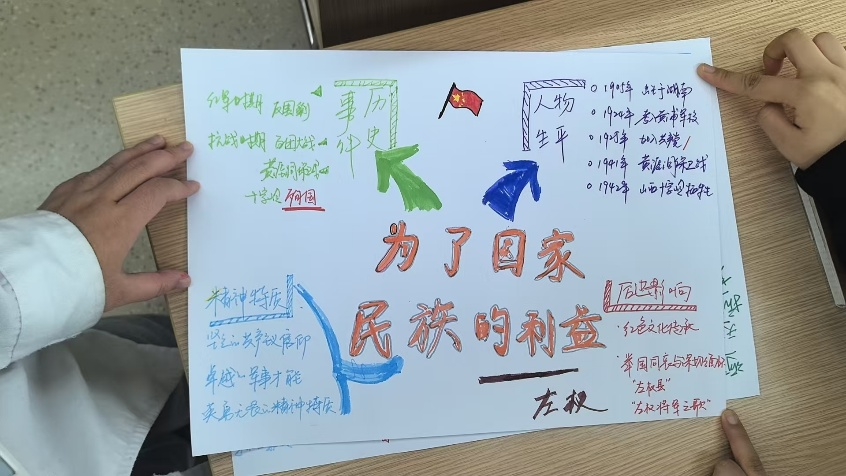 历史
事件
红军时期 反围剿
抗战时期 百团大战
黄崖洞保卫战
十字岭 殉国
人物
生平
1905年 出于湖南
1924年 考入黄埔军校
1925年 加入共党
1941年 黄崖洞保卫战
1942年 山西十字岭牺牲
为了国家
民族的利益
左权
精神特质
坚定的共产主义信仰
卓越的军事才能
英勇无畏的精神特质
后世影响
红色文化传承
举国同哀与深切缅怀
"左权县"
"左权将军之歌"